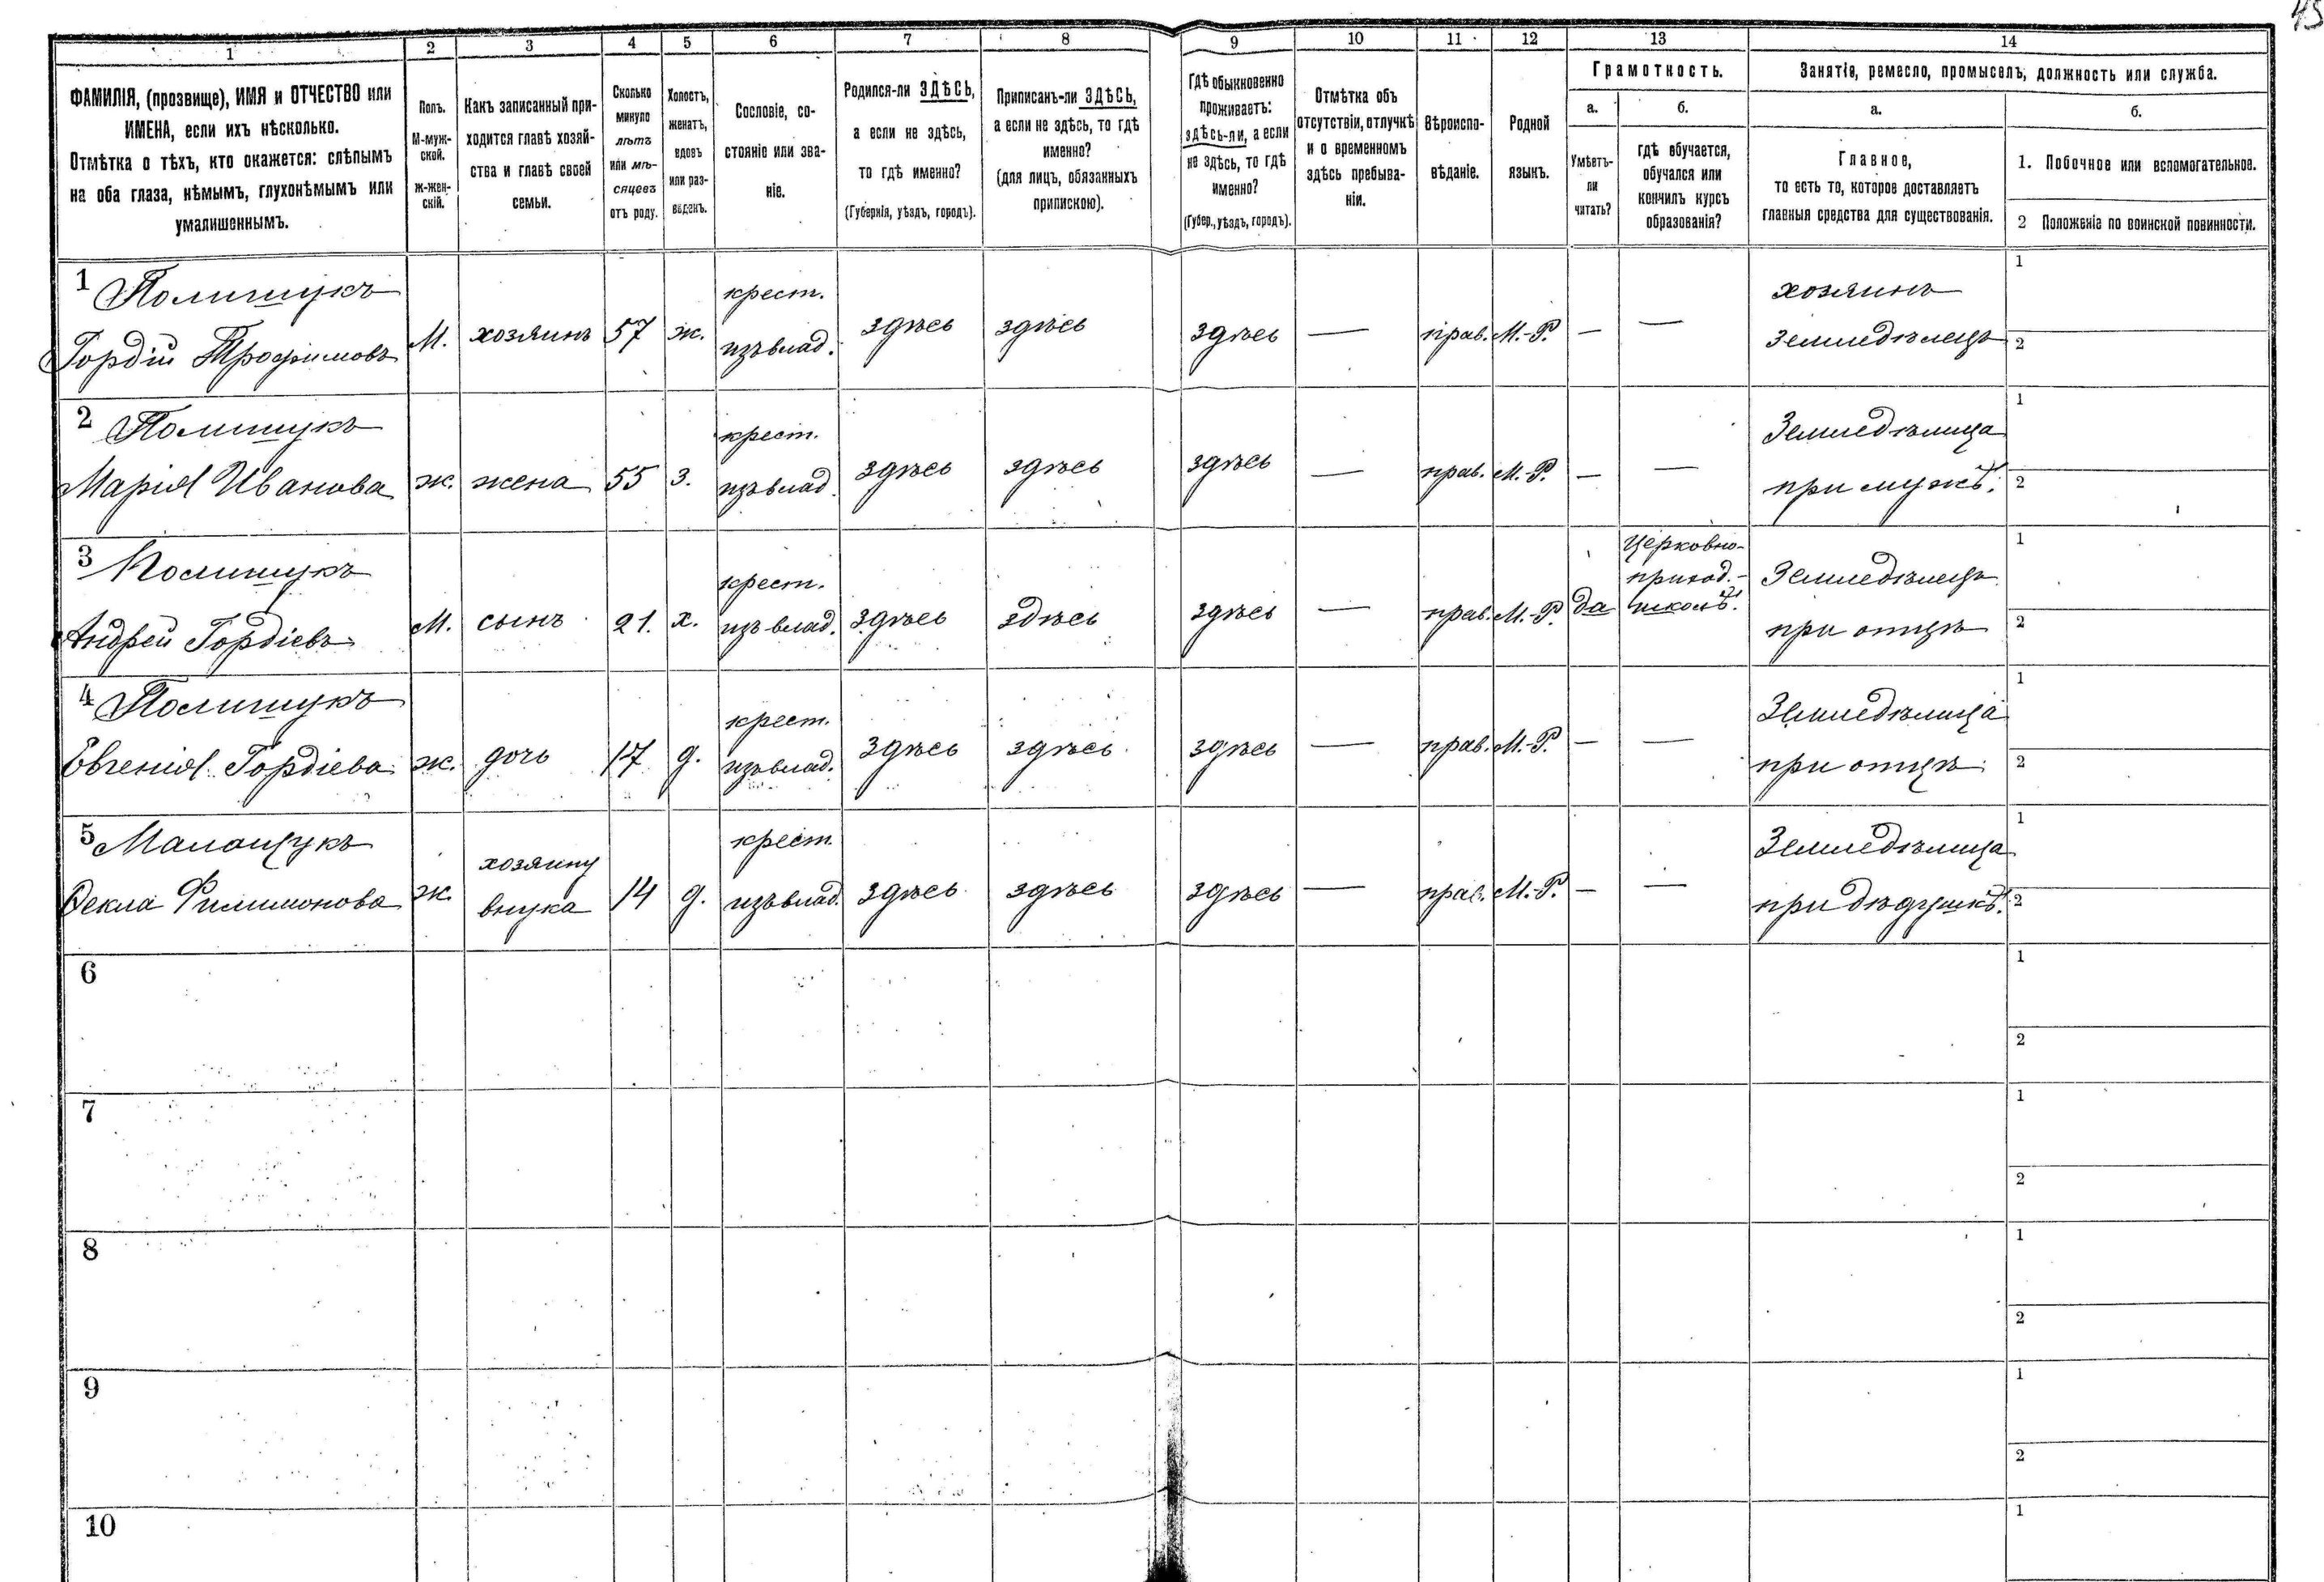 45
1 2 3 4 5 6 7 8 9 10 11 12 13 14
ФАМИЛІЯ, (прозвище), ИМЯ и ОТЧЕСТВО или
ИМЕНА, если ихъ нѣсколько.
Отмѣтка о тѣхъ, кто окажется: слѣпымъ
на оба глаза, нѣмымъ, глухонѣмымъ или
умалишеннымъ.
Полъ.
М-муж-
ской.
ж-жен-
скій.
Какъ записанный при-
ходится главѣ хозяй-
ства и главѣ своей
семьи.
Сколько
минуло
лѣтъ
или мѣ-
сяцевъ
отъ роду.
Холостъ,
женатъ,
вдовъ
или раз-
веденъ.
Сословіе, со-
стояніе или зва-
ніе.
Родился-ли ЗДѢСЬ,
а если не здѣсь,
то гдѣ именно?
(Губернія, уѣздъ, городъ).
Приписанъ-ли ЗДѢСЬ,
а если не здѣсь, то гдѣ
именно?
(для лицъ, обязанныхъ
припискою).
Гдѣ обыкновенно
проживаетъ:
здѣсь-ли, а если
не здѣсь, то гдѣ
именно?
(Губер., уѣздъ, городъ).
Отмѣтка объ
отсутствіи, отлучкѣ
и о временномъ
здѣсь пребыва-
ніи.
Вѣроиспо-
вѣданіе.
Родной
языкъ.
Грамотность.
а.
Умѣетъ-
ли
читать?
б.
гдѣ обучается,
обучался или
кончилъ курсъ
образованія?
Занятіе, ремесло, промыселъ, должность или служба.
а.
Главное,
то есть то, которое доставляетъ
главныя средства для существованія.
б.
1. Побочное или вспомогательное.
2 Положеніе по воинской повинности.
1 Полищукъ
Гордій Трофимовъ
М.
хозяинъ
57
ж.
крест.
изъ влад.
здѣсь
здѣсь
здѣсь
—
прав.
М.-Р.
—
—
хозяинъ
земледѣлецъ
1
2
2 Полищукъ
Марія Иванова
ж.
жена
55
з.
крест.
изъ влад.
здѣсь
здѣсь
здѣсь
—
прав.
М.-Р.
—
—
Земледѣлица
при мужѣ.
1
2
3 Полищукъ
Андрей Гордіевъ
М.
сынъ
21.
х.
крест.
изъ влад.
здѣсь
здѣсь
здѣсь
—
прав.
М.-Р.
да
Церковно-
приход.-
школѣ.
Земледѣлецъ
при отцѣ
1
2
4 Полищукъ
Евгенія Гордіева
ж.
дочь
17
д.
крест.
изъ влад.
здѣсь
здѣсь
здѣсь
—
прав.
М.-Р.
—
—
Земледѣлица
при отцѣ
1
2
5 Маланчукъ
Ѳекла Филимонова
ж.
хозяину
внука
14
д.
крест.
изъ влад.
здѣсь
здѣсь
здѣсь
—
прав.
М.-Р.
—
—
Земледѣлица
при дѣдушкѣ.
1
2
6
1
2
7
1
2
8
1
2
9
1
2
10
1